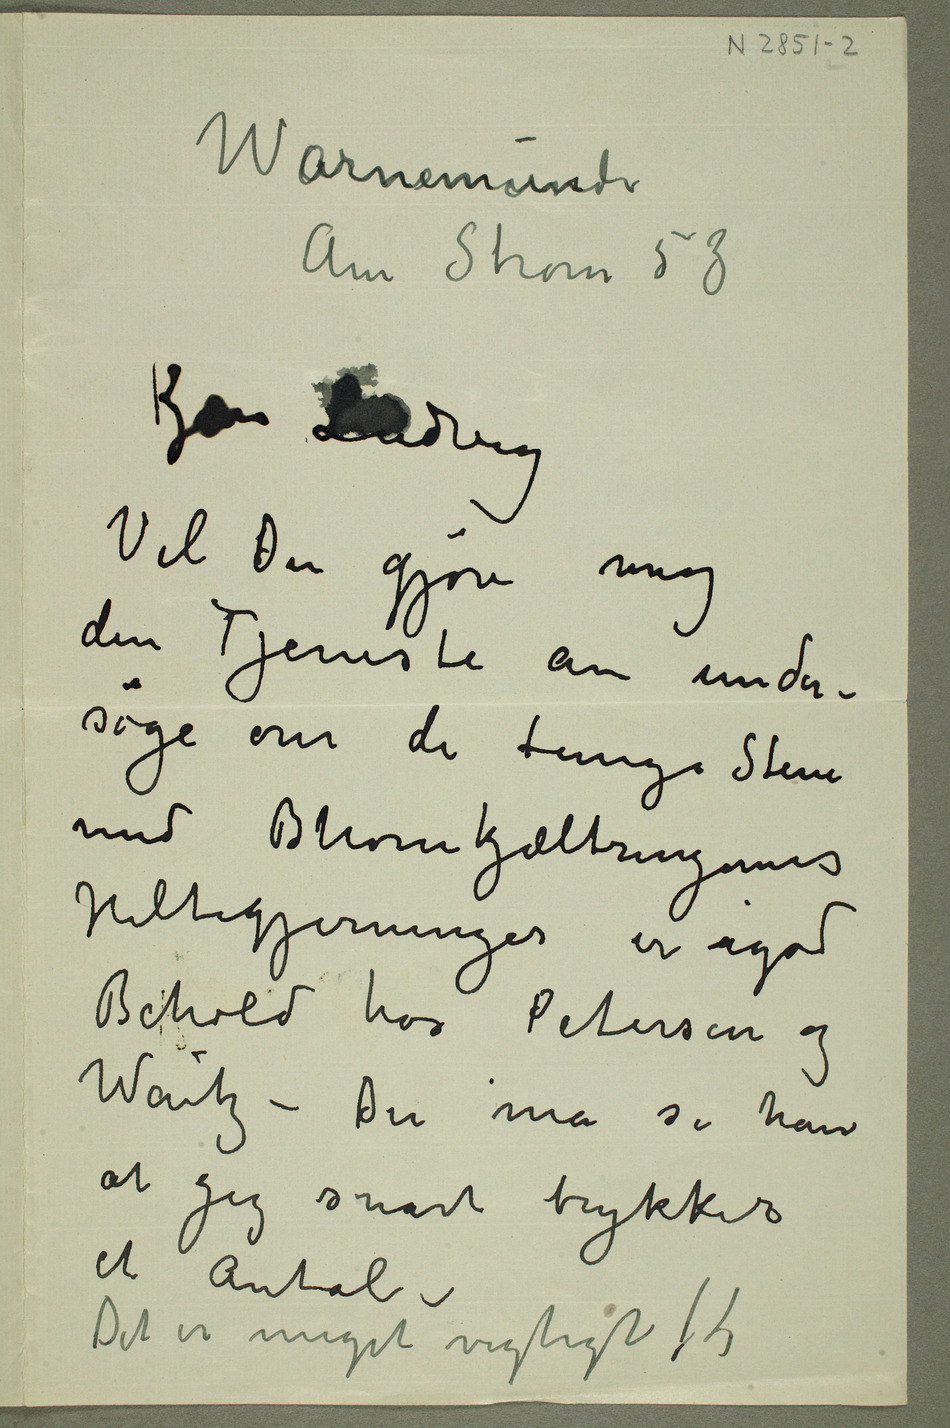 N 2851-2
Warnemünde
Am Strom 53
Kjære Ludvig
Vil Du gjöre mig
den Tjeneste an under-
söge om de tunge Stene
med Bhornkjæltringernes
Heltegjerninger er igod
Behold hos Petersen og
Waitz – Du må si ham
at jeg snart trykker
et Antal –
Det er meget vigtigt !!